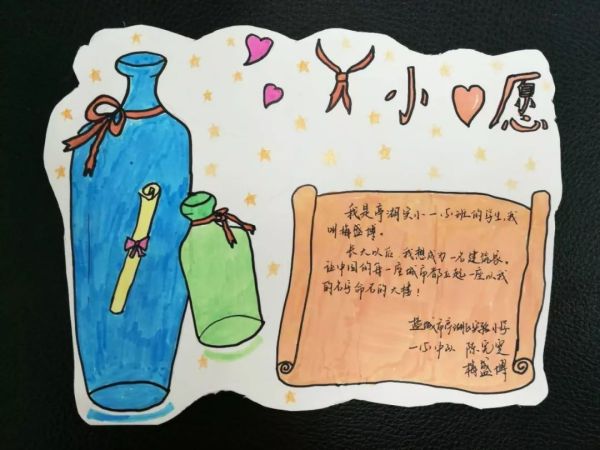 小愿
我是亭湖实小一(5)班的生,我
叫梅盛博。
长大以后,我想成为一名建筑家。
让中国的每一座城市都立起一座以我
的名字命名的大楼!
盐城市亭湖区实验小学
一(5)中队 陈雯
梅盛博